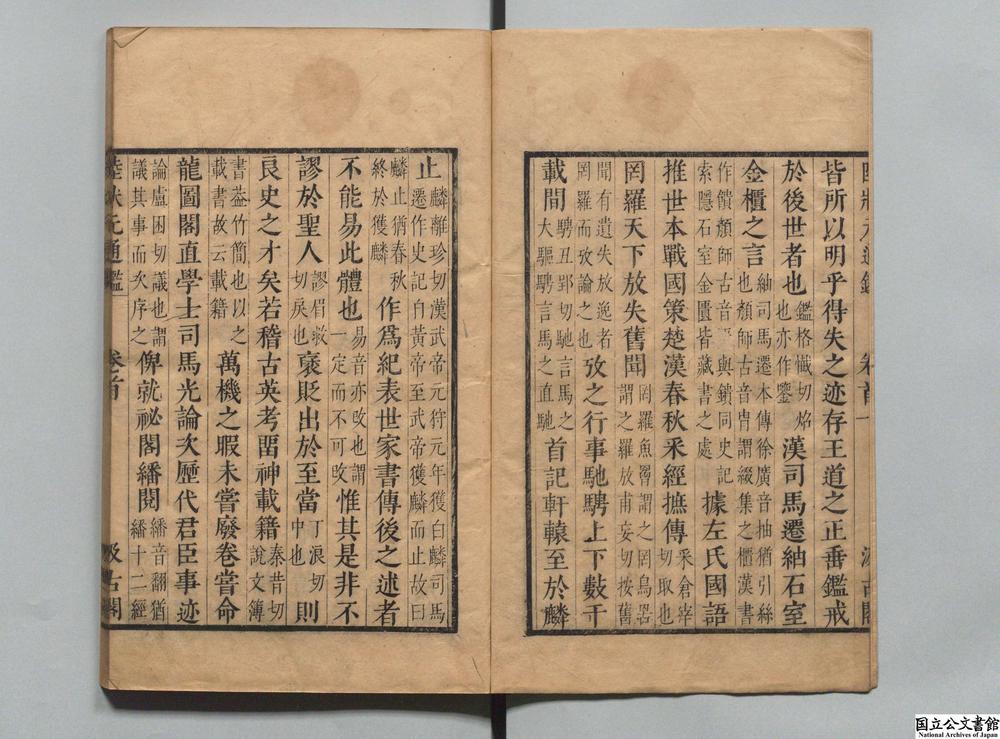 皆所以明乎得失之迹存王道之正垂鑑戒
於後世者也鑑格懺切焰也亦作鑒漢司馬遷紬石室
金櫃之言紬司馬遷本傳徐廣音抽猶引絲也顏師古音冑謂綴集之櫃漢書
作饋顏師古音與鎖同史記索隱石室金匱皆藏書之處據左氏國語
推世本戰國策楚漢春秋采經摭傳采倉宰切取也
罔羅天下放失舊聞罔羅魚罟謂之罔鳥罟謂之羅放甫妄切按舊
聞有遺失放逸者罔羅而攷論之也攷之行事馳騁上下數千
載間騁丑郢切馳言馬之大驅騁言馬之直馳首記軒轅至於麟
止麟離珍切漢武帝元狩元年獲白麟司馬遷作史記自黃帝至武帝獲麟而止故曰
麟止猶春秋終於獲麟作爲紀表世家書傳後之述者
不能易此體也易音亦攺也謂一定而不可攺惟其是非不
謬於聖人謬眉救切戾也襃貶出於至當丁浪切中也則
良史之才矣若稽古英考畱神載籍秦昔切說文簿
書葢竹簡也以之載書故云載籍萬機之暇未嘗廢卷嘗命
龍圖閣直學士司馬光論次歷代君臣事迹
論盧困切議也謂議其事而次序之俾就祕閣繙閱繙音翻猶繙十二經
陸狀元通鑑 卷首 汲古閣
国立公文書館
National Archives of Japan